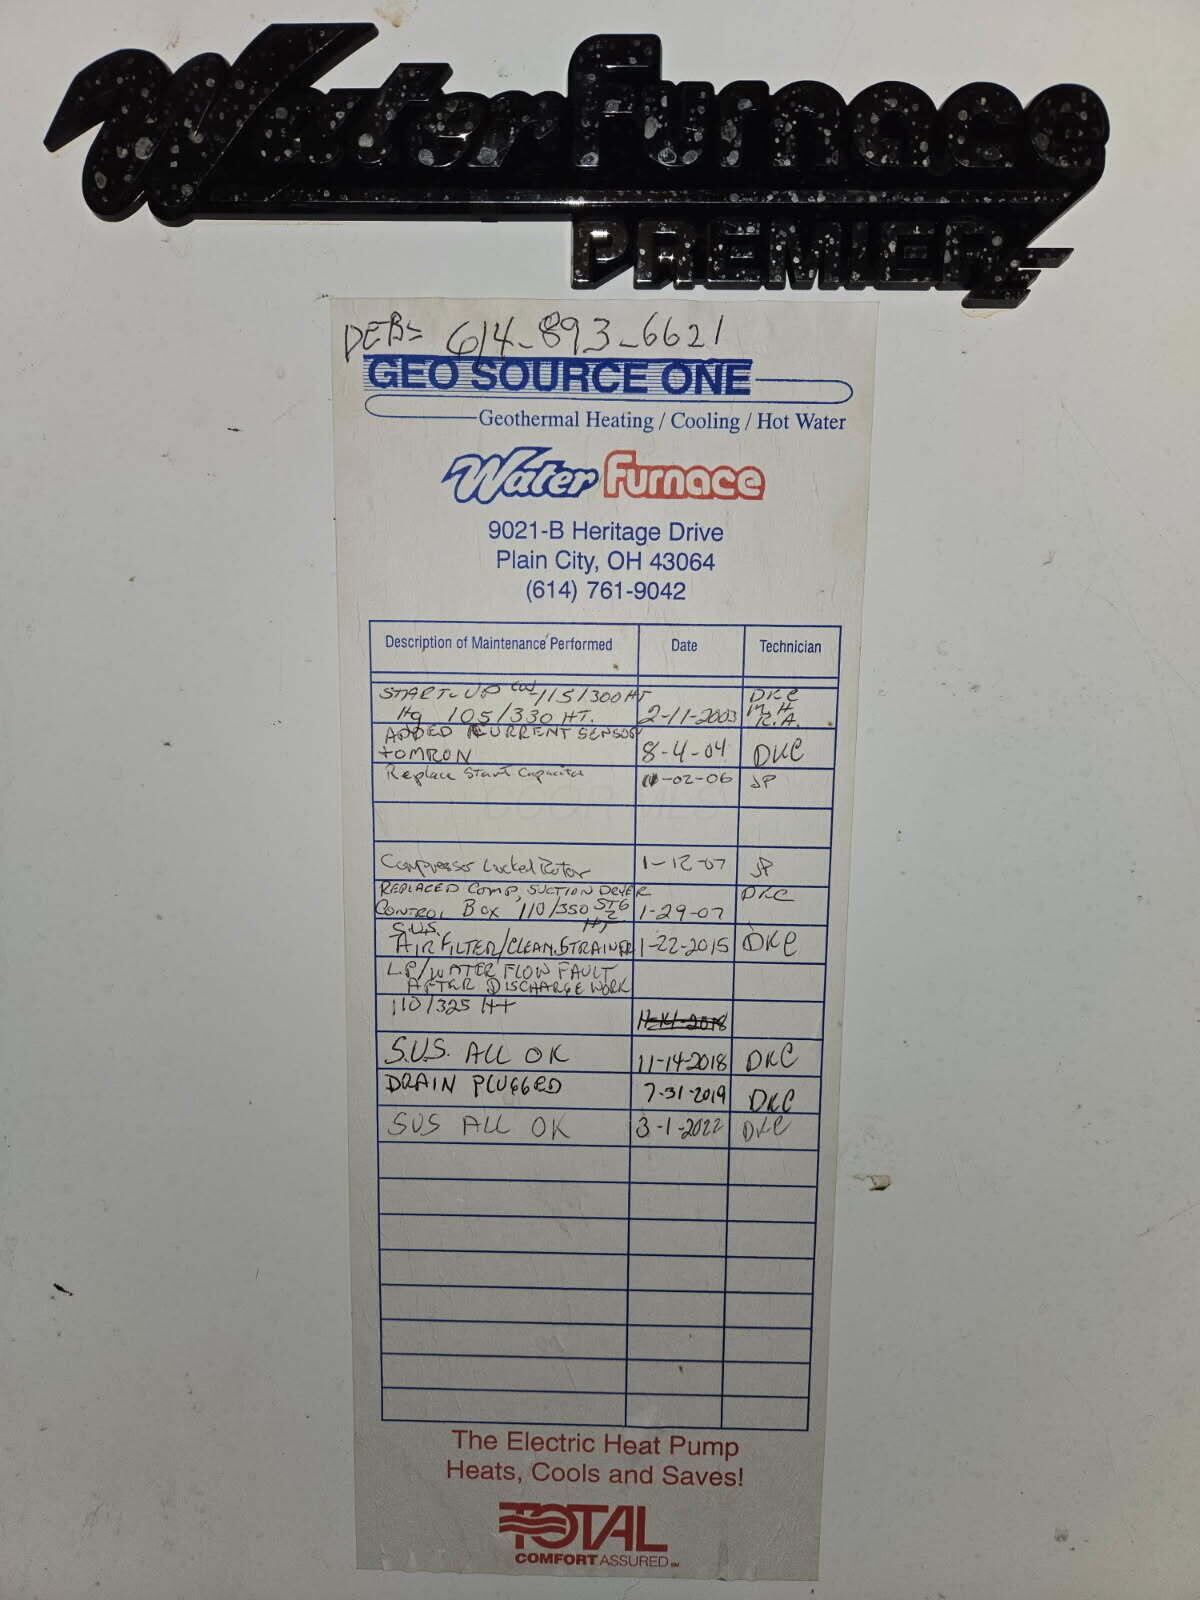 WaterFurnace
PREMIER
DEB= 614-893-6621
GEO SOURCE ONE
Geothermal Heating / Cooling / Hot Water
Water Furnace
9021-B Heritage Drive
Plain City, OH 43064
(614) 761-9042
Description of Maintenance Performed Date Technician
START-UP 115/300 HT DKC
Hg 105/330 HT. 2-11-2003 M.H. R.A.
ADDED CURRENT SENSOR
OMRON 8-4-04 DKC
Replace Start Capacitor -02-06 JP
Compressor Locked Rotor 1-12-07 JP
REPLACED COMP, SUCTION DRYER DKC
CONTROL BOX 110/350 STG 2 HT 1-29-07
S.U.S.
AIR FILTER/CLEAN.STRAINER 1-22-2015 DKC
L.P/WATER FLOW FAULT
AFTER DISCHARGE WORK
110/325 HT 11-14-2018
S.U.S. ALL OK 11-14-2018 DKC
DRAIN PLUGGED 7-31-2019 DKC
SUS ALL OK 3-1-2022 DKC
The Electric Heat Pump
Heats, Cools and Saves!
TOTAL
COMFORT ASSURED SM